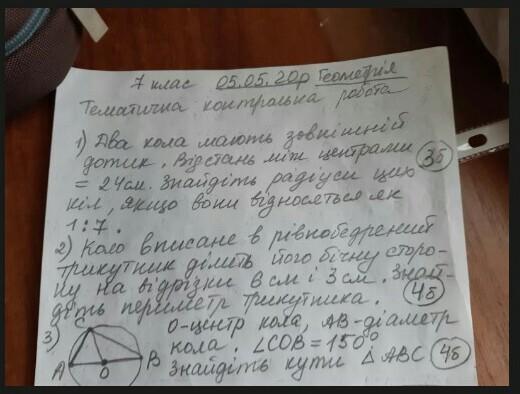 7 клас 05.05.20р Геометрія
Тематична контрольна робота
1) Два кола мають зовнішній
дотик. Відстань між центрами
= 24см. Знайдіть радіуси цих 3б
кіл, якщо вони відносяться як
1:7.
2) Коло вписане в рівнобедрений
трикутник ділить його бічну сторо-
ну на відрізки 8 см і 3 см. Знай-
діть периметр трикутника. 4б
3) C O-центр кола, AB-діаметр
кола. ∠COB = 150°
A O B Знайдіть кути △ ABC 4б